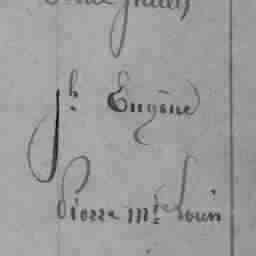 Jh. Eugène
Pierre Mie Louis